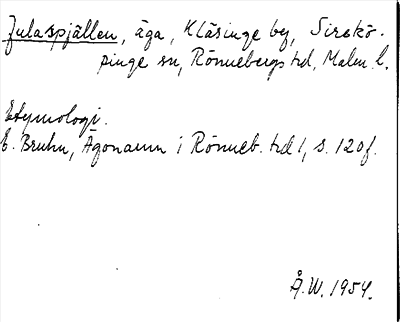 Julaspjällen, äga, Kläsinge by, Sireköpinge sn, Rönnebergs hd, Malm. l.
Etymologi.
E. Bruhn, Ägonamn i Rönneb. hd 1, s. 120f.
Å.W. 1954.